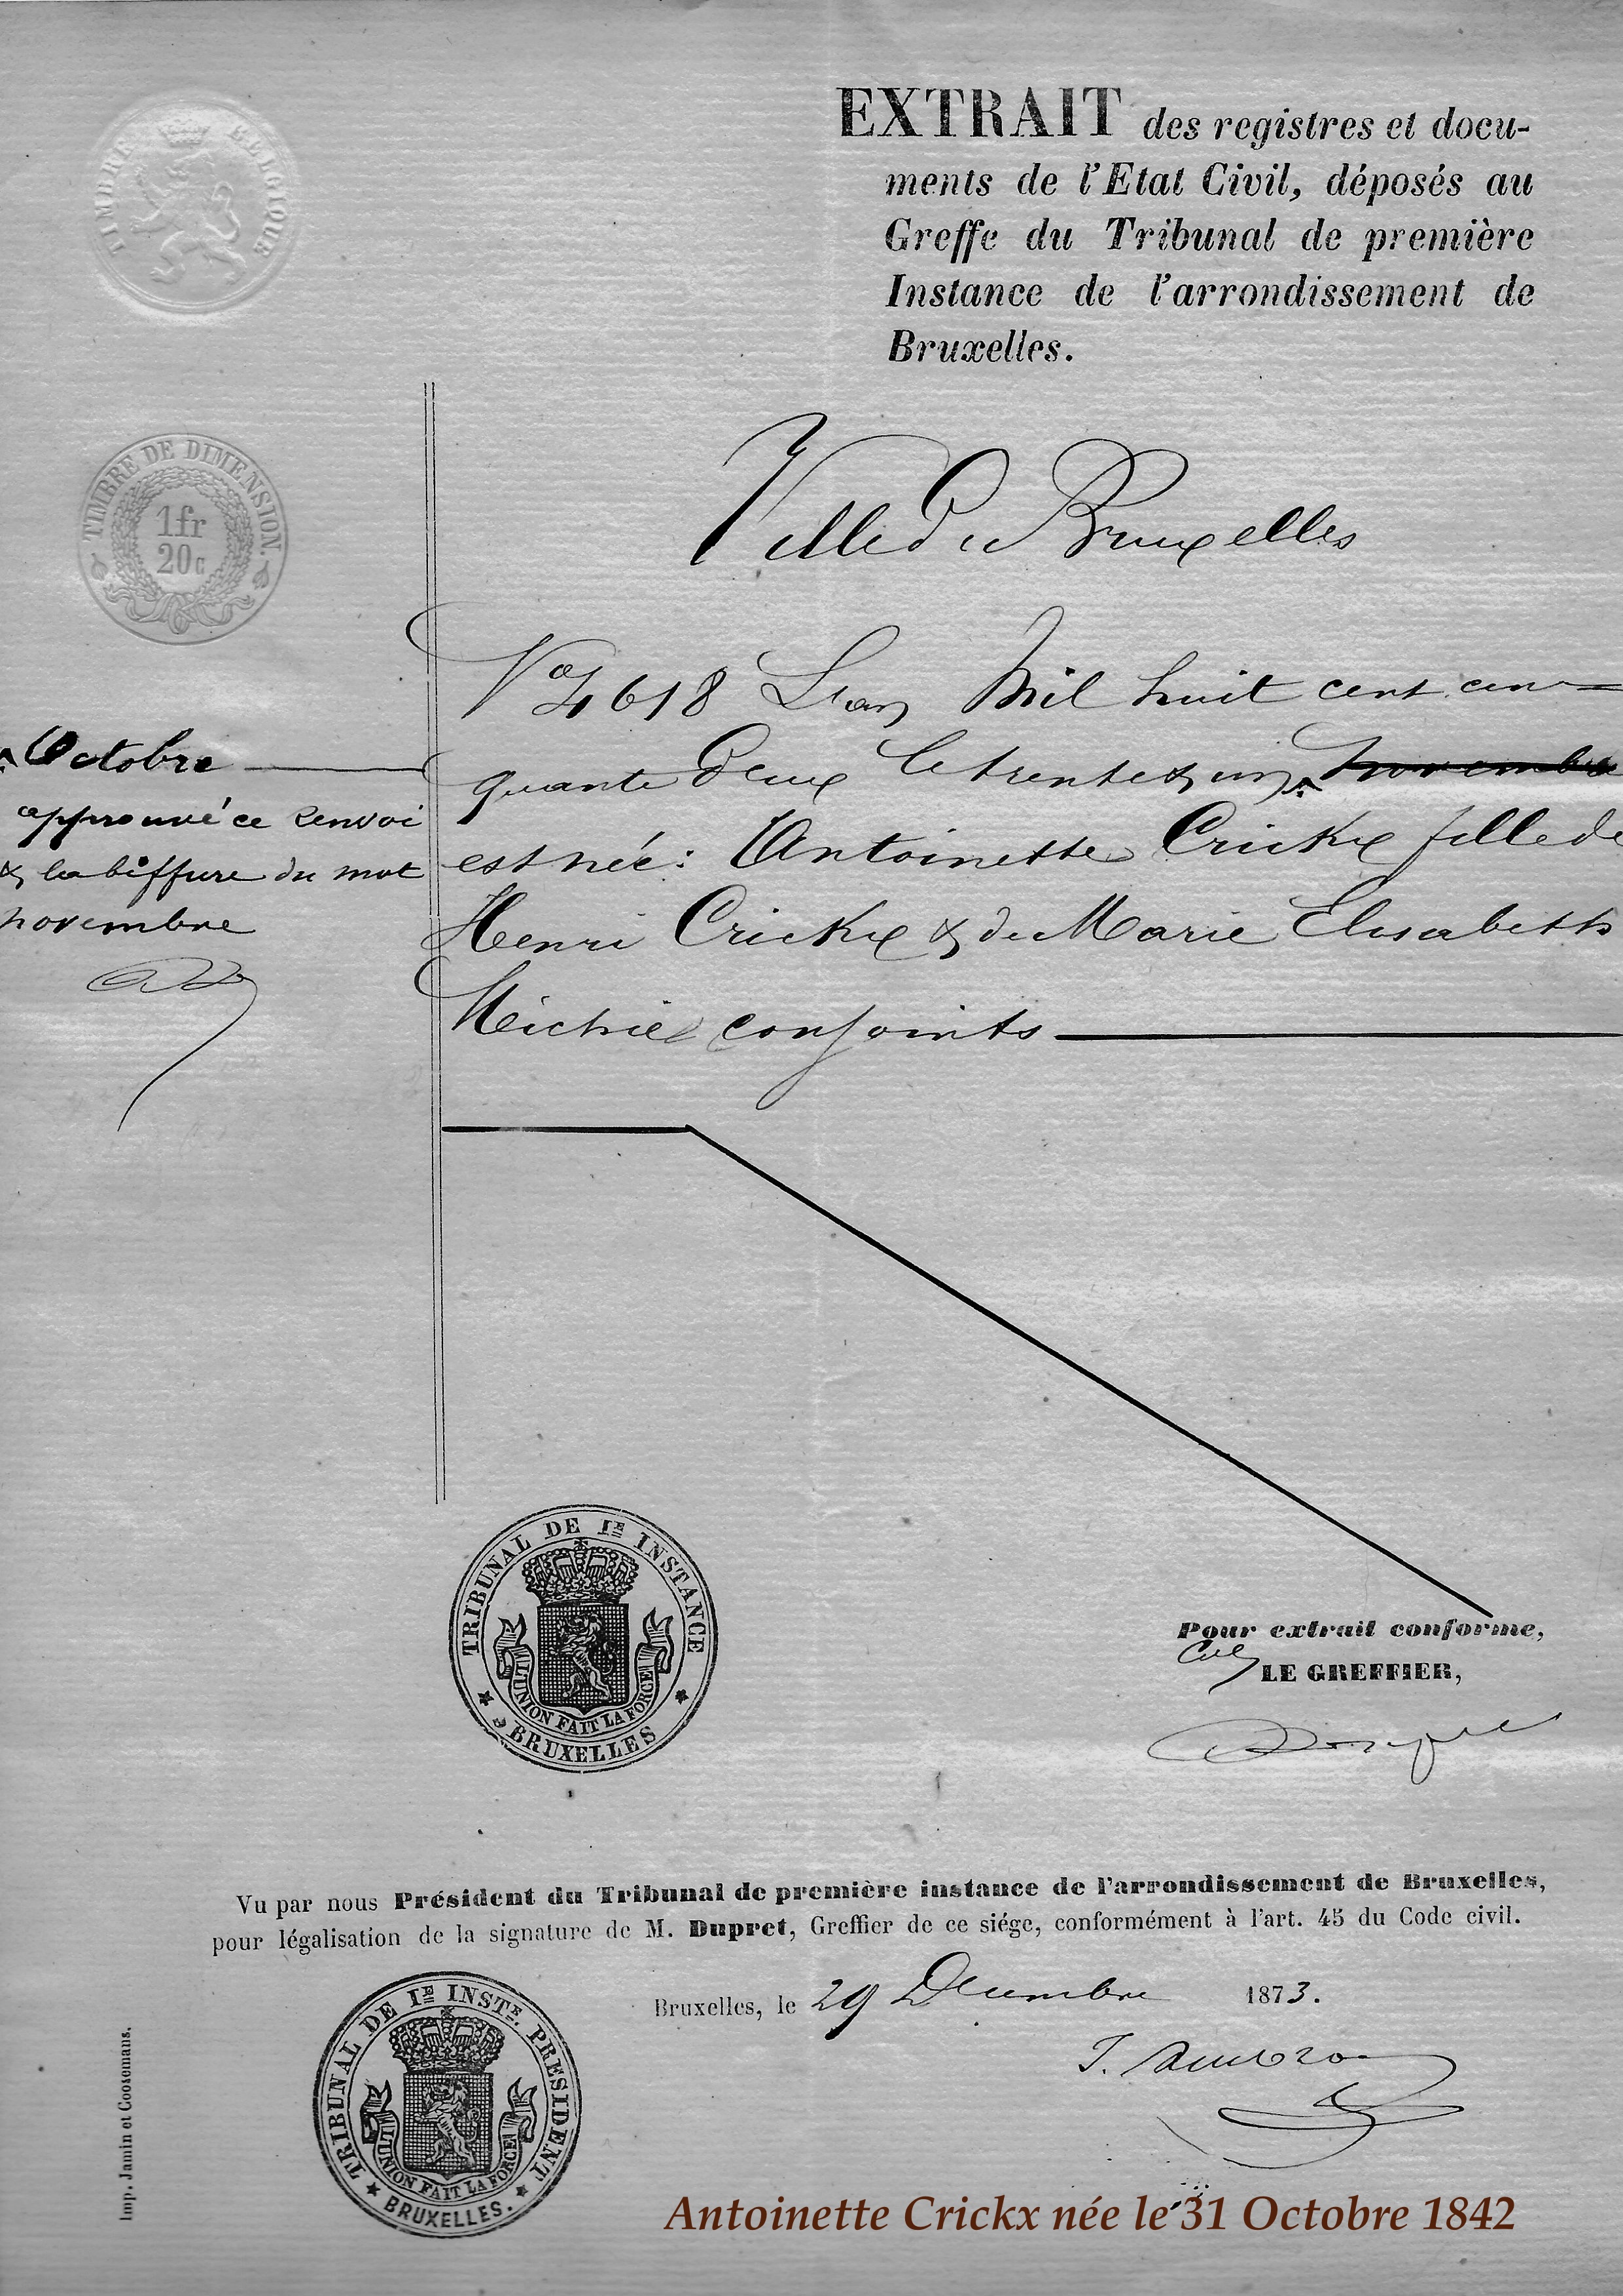 TIMBRE BELGIQUE
EXTRAIT des registres et docu-
ments de l'Etat Civil, déposés au
Greffe du Tribunal de première
Instance de l'arrondissement de
Bruxelles.
TIMBRE DE DIMENSION.
1fr
20c
Ville de Bruxelles
No 4618 L'an Mil huit cent cin=
quante deux le trente & un novembre
est née: Antoinette Crickx fille de
Henri Crickx & de Marie Elisabeth
conjoints
Octobre
approuvé ce renvoi
& la biffure du mot
novembre
TRIBUNAL DE 1RE INSTANCE
L'UNION FAIT LA FORCE
BRUXELLES
Pour extrait conforme,
LE GREFFIER,
Vu par nous Président du Tribunal de première instance de l'arrondissement de Bruxelles,
pour légalisation de la signature de M. Dupret, Greffier de ce siége, conformément à l'art. 45 du Code civil.
Bruxelles, le 29 Décembre 1873.
TRIBUNAL DE 1RE INSTE. PRESIDENT
L'UNION FAIT LA FORCE
BRUXELLES.
Imp. Jamin et Coosemans.
Antoinette Crickx née le 31 Octobre 1842